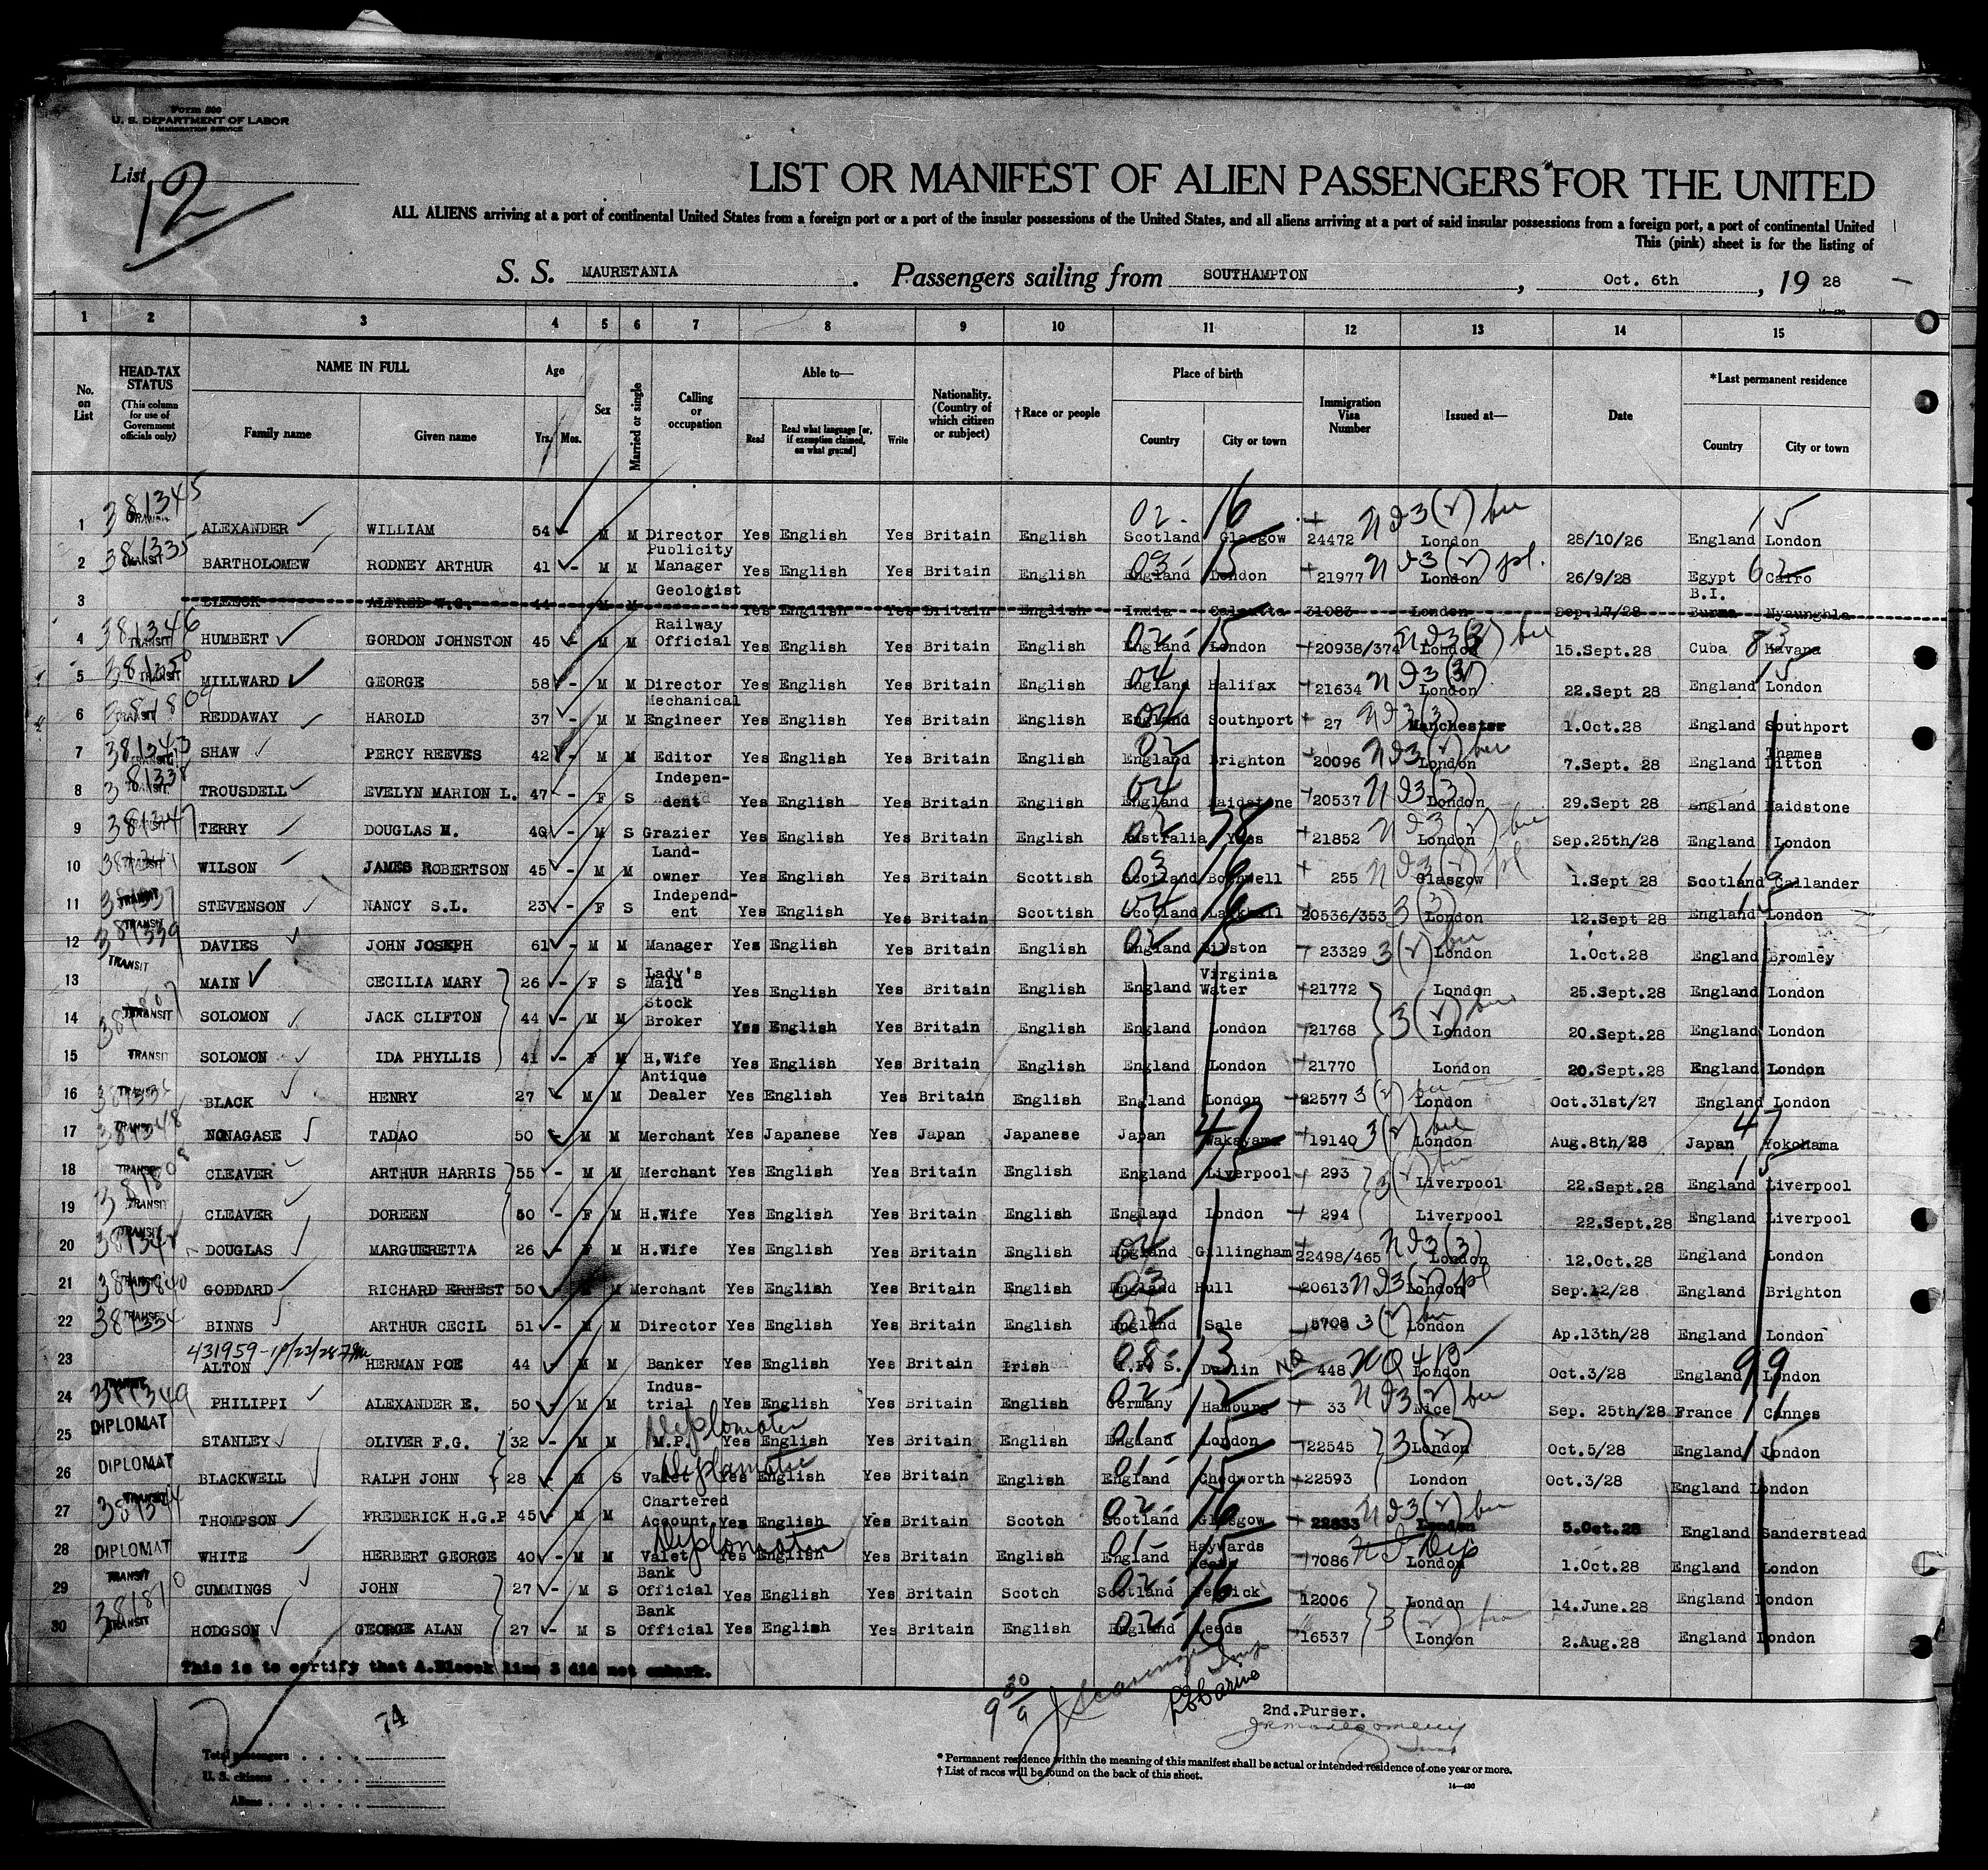 Form 500
U. S. DEPARTMENT OF LABOR
IMMIGRATION SERVICE
List 12
LIST OR MANIFEST OF ALIEN PASSENGERS FOR THE UNITED
ALL ALIENS arriving at a port of continental United States from a foreign port or a port of the insular possessions of the United States, and all aliens arriving at a port of said insular possessions from a foreign port, a port of continental United
This (pink) sheet is for the listing of
S. S. MAURETANIA. Passengers sailing from SOUTHAMPTON, Oct. 6th, 19 28
1 2 3 4 5 6 7 8 9 10 11 12 13 14 15
No. on List
HEAD-TAX STATUS (This column for use of Government officials only)
NAME IN FULL Family name Given name
Age Yrs. Mos.
Sex
Married or single
Calling or occupation
Able to— Read Read what language [or, if exemption claimed, on what ground] Write
Nationality. (Country of which citizen or subject)
†Race or people
Place of birth Country City or town
Immigration Visa Number
Issued at—
Date
*Last permanent residence Country City or town
1 381345 ALEXANDER WILLIAM 54 - M M Director Yes English Yes Britain English 02. Scotland Glasgow 16 24472 London 28/10/26 England London 15
2 381335 TRANSIT BARTHOLOMEW RODNEY ARTHUR 41 - M M Publicity Manager Yes English Yes Britain English 03- England London 15 21977 London 26/9/28 Egypt Cairo 62
3 BLEECK ALFRED W.G. 44 M M Geologist Yes English Yes Britain English India Calcutta 31083 London Sep.17/28 B.I. Burma Nyaunghla
4 381346 TRANSIT HUMBERT GORDON JOHNSTON 45 - M M Railway Official Yes English Yes Britain English 02- England London 15 20938/374 London 15.Sept.28 Cuba Havana 83
5 TRANSIT MILLWARD GEORGE 58 - M M Director Yes English Yes Britain English 04 England Halifax 21634 London 22.Sept 28 England London 15
6 TRANSIT REDDAWAY HAROLD 37 - M M Mechanical Engineer Yes English Yes Britain English 04 England Southport 27 Manchester 1.Oct.28 England Southport
7 381343 TRANSIT SHAW PERCY REEVES 42 - M M Editor Yes English Yes Britain English 02 England Brighton 20096 London 7.Sept. 28 England Thames Ditton
8 381338 TRANSIT TROUSDELL EVELYN MARION L. 47 - F S Independent Yes English Yes Britain English 04 England Maidstone 20537 London 29.Sept 28 England Maidstone
9 381347 TERRY DOUGLAS M. 40 - M S Grazier Yes English Yes Britain English 02 Australia Yass 78 21852 London Sep.25th/28 England London
10 WILSON JAMES ROBERTSON 45 - M M Land-owner Yes English Yes Britain Scottish 03 Scotland Bothwell 16 255 Glasgow 1.Sept 28 Scotland Callander 16
11 TRANSIT STEVENSON NANCY S.L. 23 - F S Independ-ent Yes English Yes Britain Scottish 04 Scotland Larkhall 16 20536/353 London 12.Sept 28 England London 15
12 TRANSIT 381339 DAVIES JOHN JOSEPH 61 - M M Manager Yes English Yes Britain English 02 England Bilston 15 23329 London 1.Oct.28 England Bromley
13 TRANSIT MAIN CECILIA MARY 26 - F S Lady's Maid Yes English Yes Britain English England Virginia Water 21772 London 25.Sept.28 England London
14 TRANSIT SOLOMON JACK CLIFTON 44 - M M Stock Broker Yes English Yes Britain English England London 21768 London 20.Sept.28 England London
15 TRANSIT SOLOMON IDA PHYLLIS 41 - F M H,Wife Yes English Yes Britain English England London 21770 London 20.Sept.28 England London
16 TRANSIT BLACK HENRY 27 - M M Antique Dealer Yes English Yes Britain English England London 22577 London Oct.31st/27 England London
17 381348 NONAGASE TADAO 50 - M M Merchant Yes Japanese Yes Japan Japanese Japan Wakayama 47 19140 London Aug.8th/28 Japan Yokohama 47
18 TRANSIT CLEAVER ARTHUR HARRIS 55 - M M Merchant Yes English Yes Britain English England Liverpool 15 293 Liverpool 22.Sept.28 England Liverpool 15
19 TRANSIT CLEAVER DOREEN 50 - F M H.Wife Yes English Yes Britain English England London 294 Liverpool 22.Sept.28 England Liverpool
20 TRANSIT DOUGLAS MARGUERETTA 26 - F M H.Wife Yes English Yes Britain English 04 England Gillingham 22498/465 London 12.Oct.28 England London
21 GODDARD RICHARD ERNEST 50 - M Merchant Yes English Yes Britain English 03 England Hull 20613 London Sep.12/28 England Brighton
22 BINNS ARTHUR CECIL 51 - M M Director Yes English Yes Britain English 02 England Sale 5708 London Ap.13th/28 England London
23 431959- ALTON HERMAN POE 44 - M M Banker Yes English Yes Britain Irish 08- I.F. S. Dublin 13 NQ 448 London Oct.3/28 England London 99
24 381349 PHILIPPI ALEXANDER E. 50 - M M Indus-trial Yes English Yes Britain English 02- Germany Hamburg 12 33 Nice Sep. 25th/28 France Cannes 11
25 DIPLOMAT STANLEY OLIVER F.G. 32 - M M M.P. Yes English Yes Britain English 01- England London 15 22545 London Oct.5/28 England London 15
26 DIPLOMAT BLACKWELL RALPH JOHN 28 - M S Valet Yes English Yes Britain English 01- England Chedworth 15 22593 London Oct.3/28 England London
27 381344 THOMPSON FREDERICK H.G.P 45 - M M Chartered Account. Yes English Yes Britain Scotch 02- Scotland Glasgow 16 22833 London 5.Oct.28 England Sanderstead
28 DIPLOMAT WHITE HERBERT GEORGE 40 - M M Valet Yes English Yes Britain English 01- England Haywards Heath 15 7086 London 1.Oct.28 England London
29 TRANSIT CUMMINGS JOHN 27 - M S Bank Official Yes English Yes Britain Scotch 02- Scotland 16 12006 London 14.June.28 England London
30 381810 TRANSIT HODGSON GEORGE ALAN 27 - M S Bank Official Yes English Yes Britain English 02- England Leeds 15 16537 London 2.Aug.28 England London
This is to certify that A.Bleeck line 3 did not embark.
74
2nd.Purser.
Total passengers
U. S. citizens
Aliens
* Permanent residence within the meaning of this manifest shall be actual or intended residence of one year or more.
† List of races will be found on the back of this sheet.
14—430